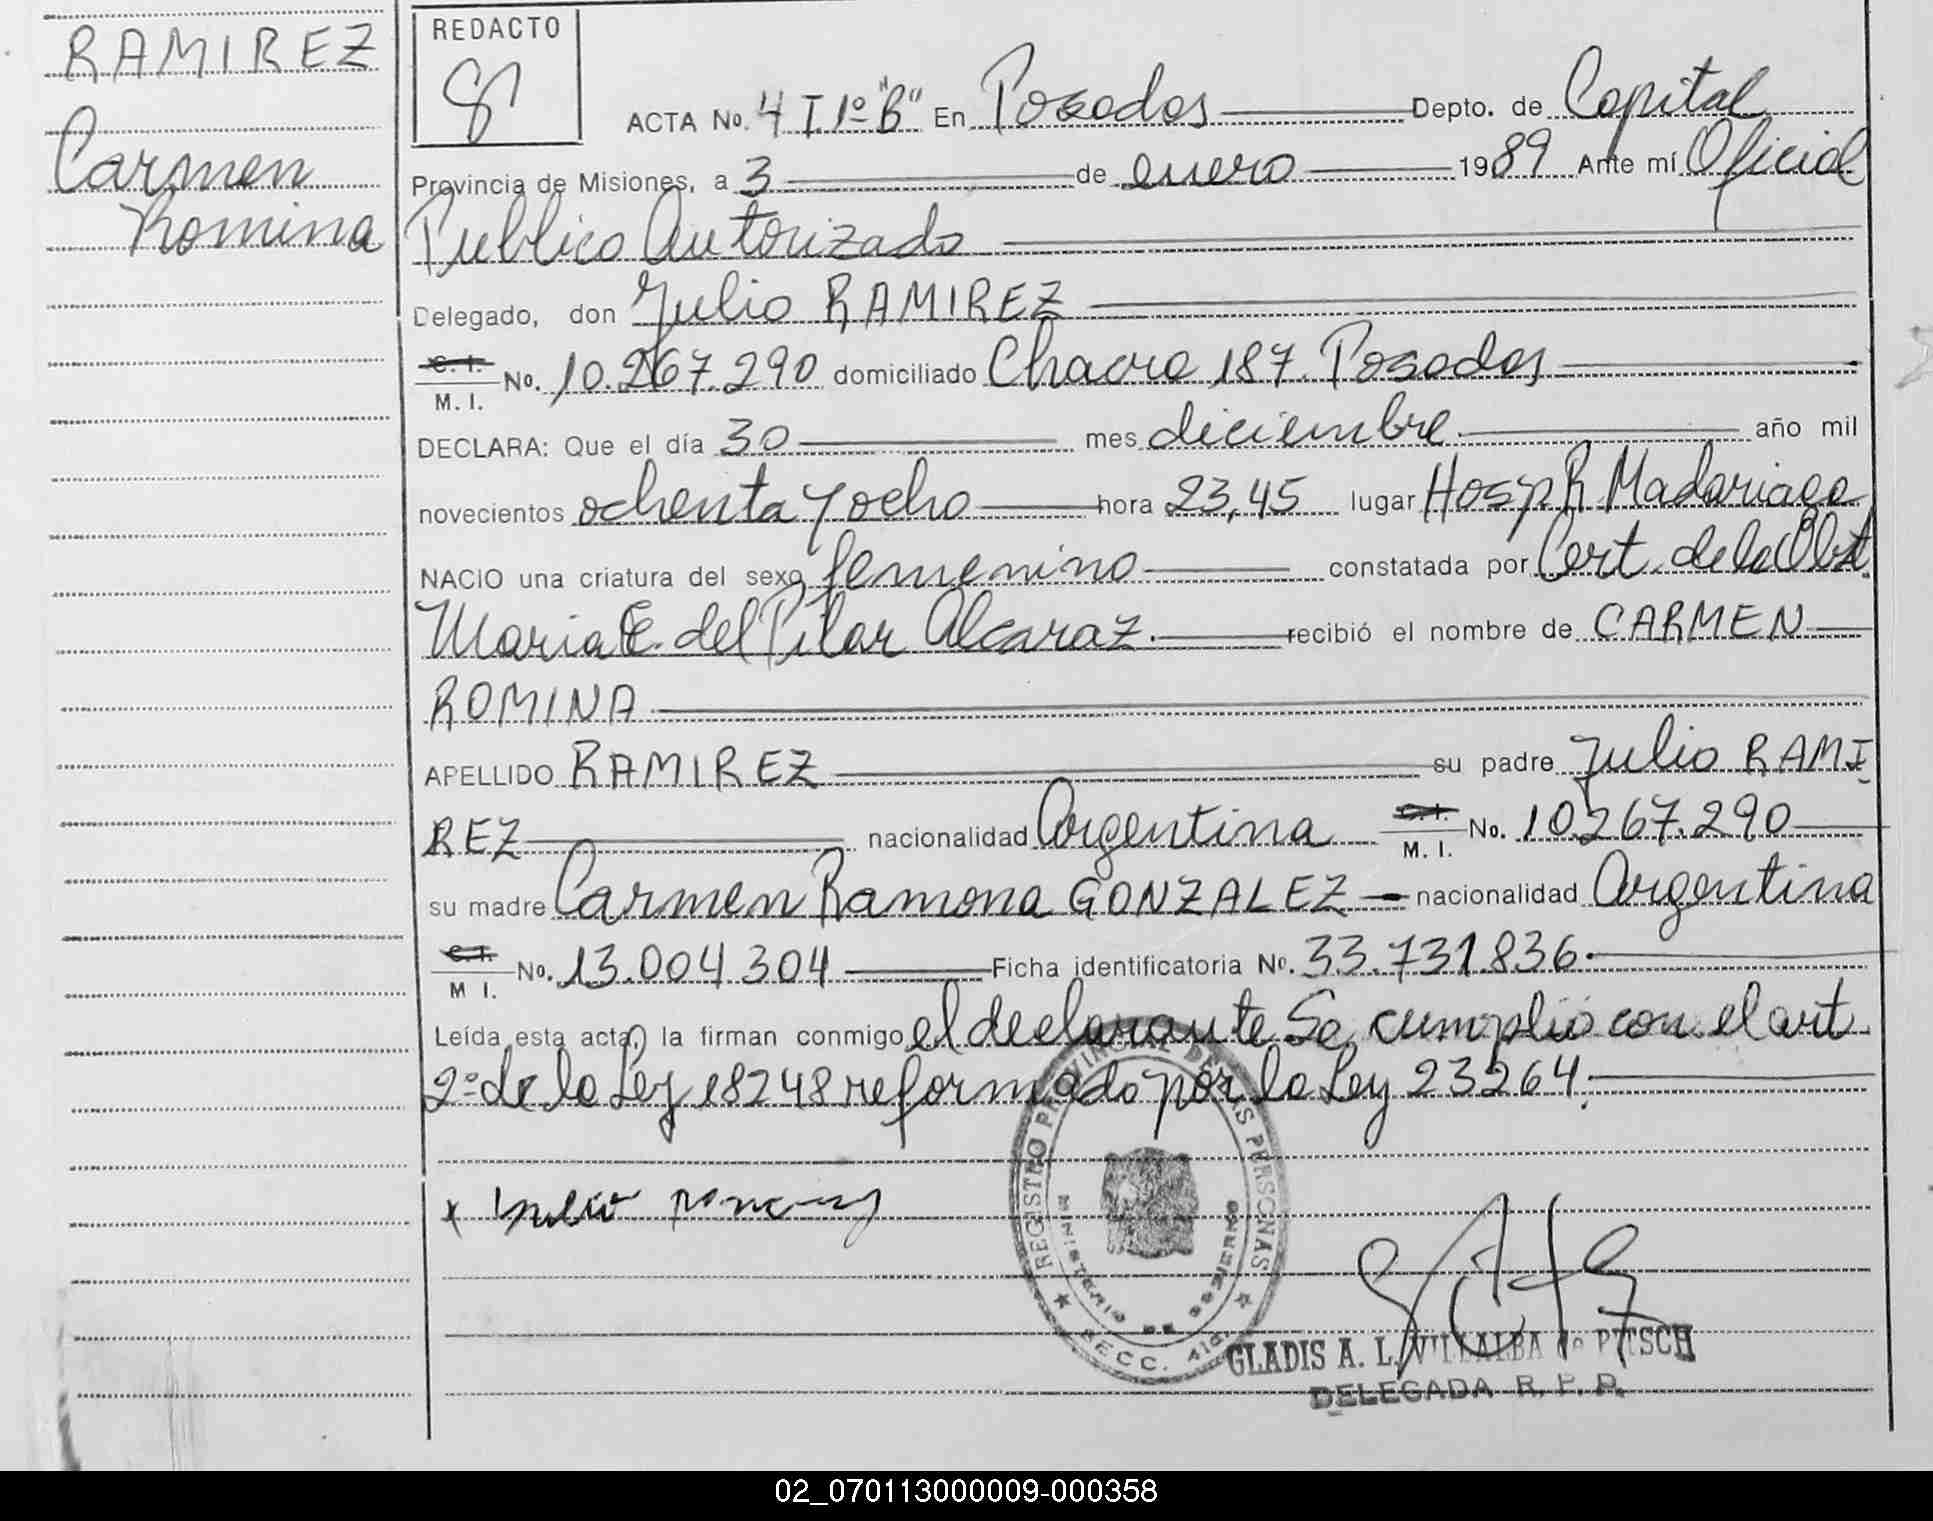 RAMIREZ
Carmen
Romina
REDACTO
ACTA No. 4 T. 1º "B" En Posadas Depto. de Capital
Provincia de Misiones, a 3 de enero 1989 Ante mí Oficial
Publico Autorizado
Delegado, don Julio RAMIREZ
C. I.
M. I. No. 10.267.290 domiciliado Chacra 187. Posadas
DECLARA: Que el día 30 mes diciembre año mil
novecientos ochenta y ocho hora 23,45 lugar Hosp R. Madariaga
NACIO una criatura del sexo femenino constatada por Cert. de la Obst.
Maria E. del Pilar Alcaraz. recibió el nombre de CARMEN
ROMINA
APELLIDO RAMIREZ su padre Julio RAMI
REZ nacionalidad Argentina C. I.
M. I. No. 10.267.290
su madre Carmen Ramona GONZALEZ nacionalidad Argentina
C. I.
M. I. No. 13.004.304 Ficha identificatoria No. 33.731.836.
Leída esta acta, la firman conmigo el declarante. Se cumplió con el art.
2º de la Ley 18248 reformado por la Ley 23264.
x Julio
REGISTRO PROVINCIAL DE LAS PERSONAS
MINISTERIO DE GOBIERNO
SECC. 41a.
GLADIS A. L. VILLALBA de PITSCH
DELEGADA R. P. P.
02_070113000009-000358